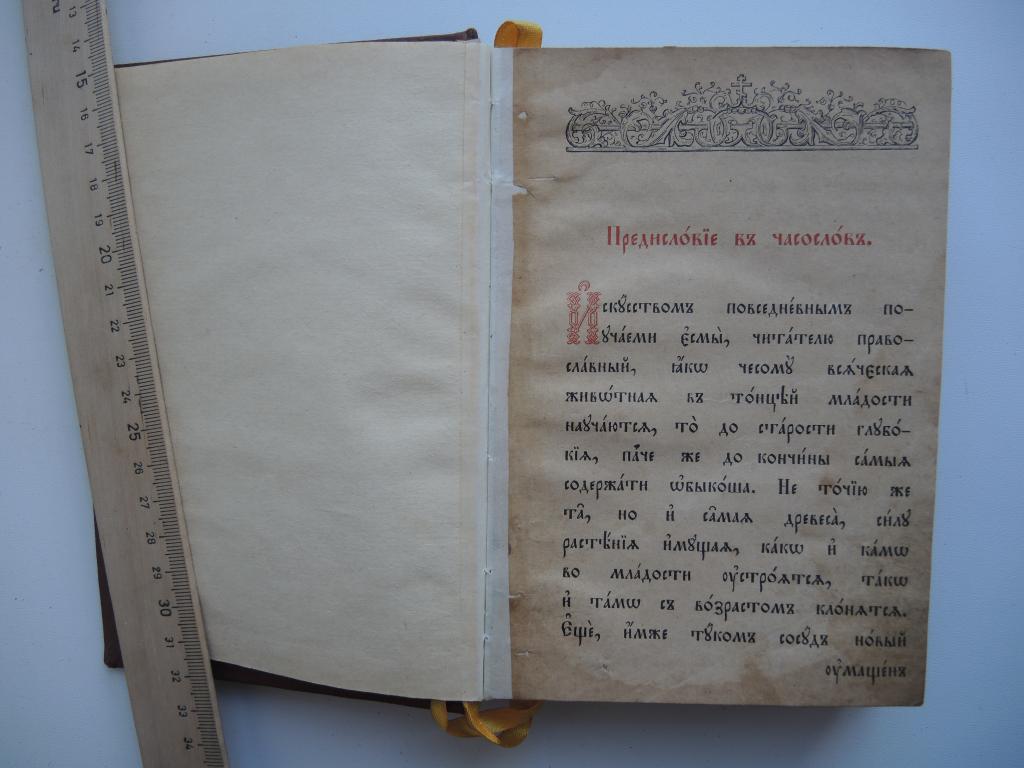 Предисло́вїе въ часосло́въ.
И҆скꙋ́сствомъ повседне́внымъ по-
ꙋча́еми є҆смы̀, чита́телю право-
сла́вный, ꙗ҆́кѡ чесомꙋ̀ всѧ́ческаѧ
живѡ́тнаѧ въ то́нцѣй мла́дости
наꙋча́ютсѧ, то̀ до ста́рости глꙋбо́-
кїѧ, па́че же до кончи́ны са́мыѧ
содержа́ти ѡ҆быко́ша. Не то́чїю же
та̑, но и҆ са̑маѧ древеса̀, си́лꙋ
расте́нїѧ и҆мꙋ́щаѧ, ка́кѡ и҆ ка́мѡ
во мла́дости ᲂу҆стро́ѧтсѧ, та́кѡ
и҆ та́мѡ съ во́зрастомъ кло́нѧтсѧ.
Є҆щѐ, и҆́мже тꙋ́комъ сосꙋ́дъ но́вый
ᲂу҆маще́нъ
13
14
15
16
17
18
19
20
21
22
23
24
25
26
27
28
29
30
31
32
33
34